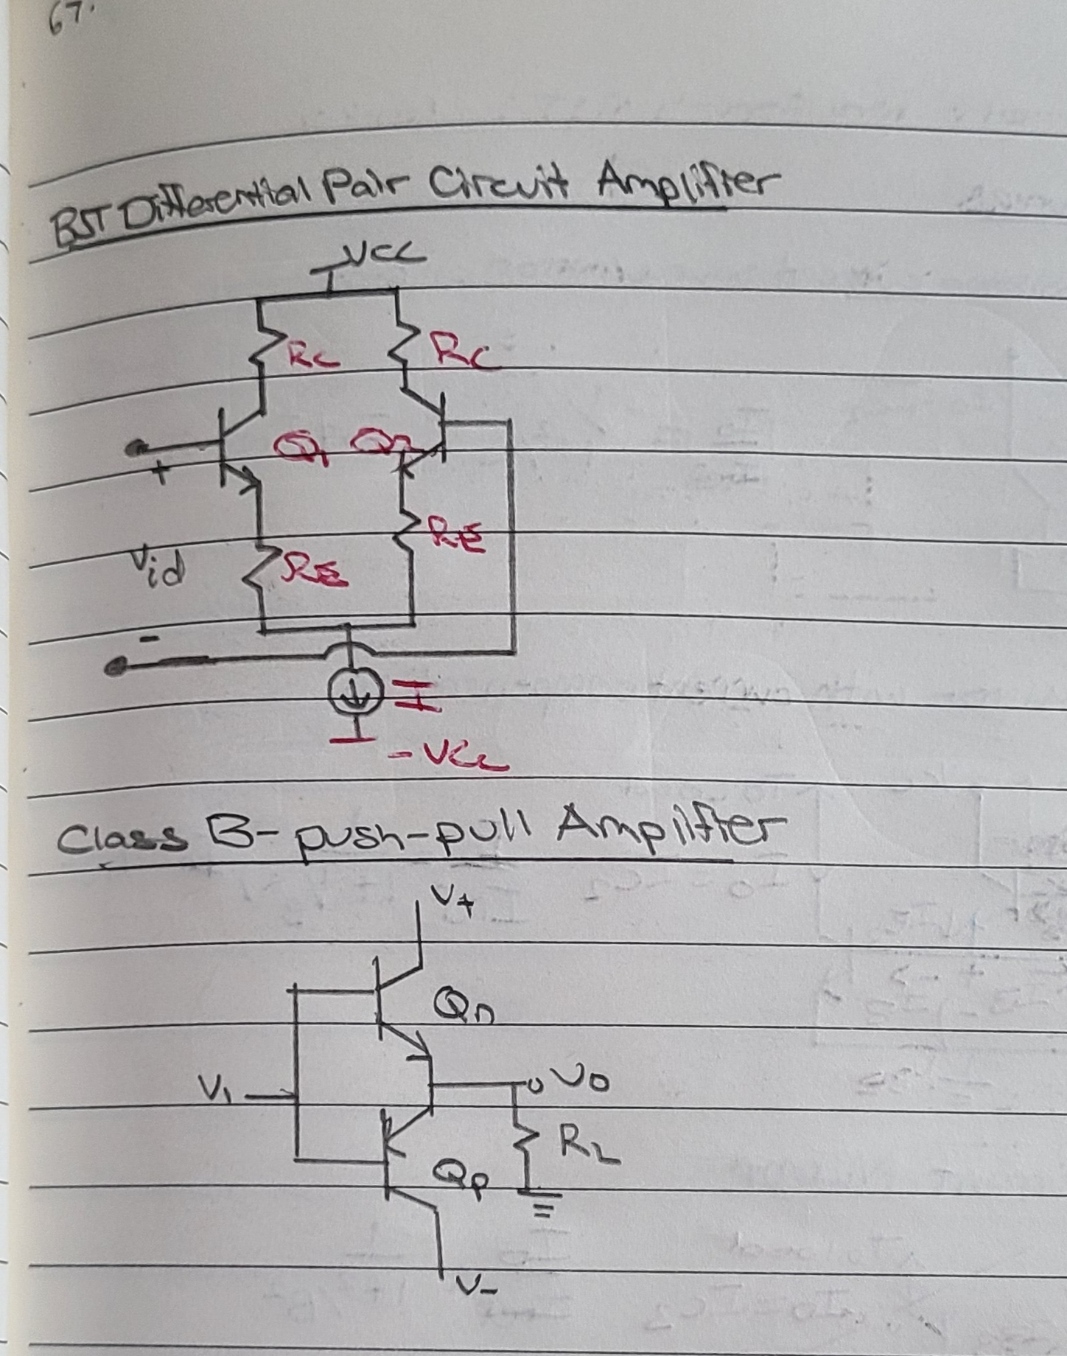 67.
BJT Differential Pair Circuit Amplifier
VCC
RC RC
Q1 Q2
+
RE
Vid RE
-
I
-VCC
Class B-push-pull Amplifier
V+
Qn
VI Vo
RL
Qp
V-